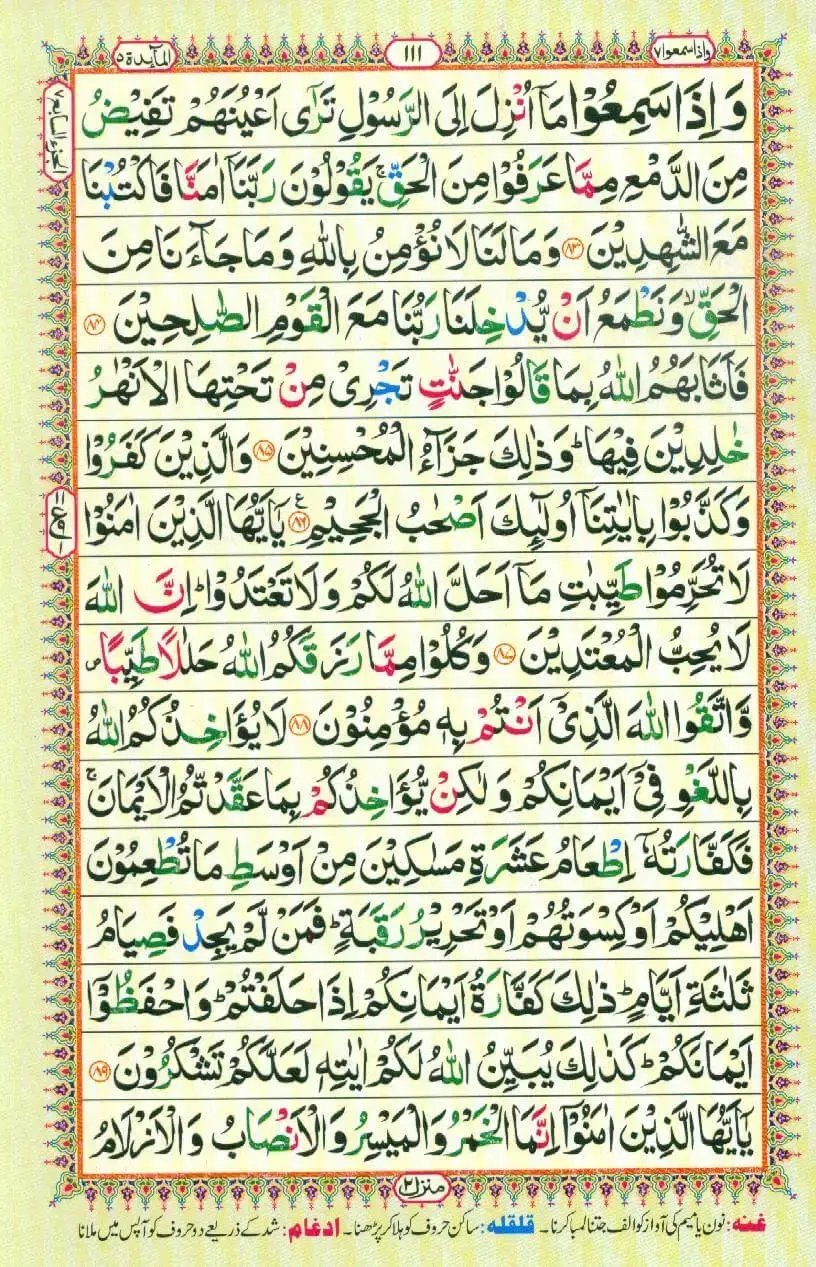 المآىدة ٥
١١١
واذاسمعوا ٧
الجزء السابع ٧
وَ اِذَا سَمِعُوْا مَاۤ اُنْزِلَ اِلَى الرَّسُوْلِ تَرٰۤى اَعْیُنَهُمْ تَفِیْضُ
مِنَ الدَّمْعِ مِمَّا عَرَفُوْا مِنَ الْحَقِّ ۚ یَقُوْلُوْنَ رَبَّنَاۤ اٰمَنَّا فَاكْتُبْنَا
مَعَ الشّٰهِدِیْنَ ﴿۸۳﴾ وَ مَا لَنَا لَا نُؤْمِنُ بِاللّٰهِ وَ مَا جَآءَنَا مِنَ
الْحَقِّ ۙ وَ نَطْمَعُ اَنْ یُّدْخِلَنَا رَبُّنَا مَعَ الْقَوْمِ الصّٰلِحِیْنَ ﴿۸۴﴾
فَاَثَابَهُمُ اللّٰهُ بِمَا قَالُوْا جَنّٰتٍ تَجْرِیْ مِنْ تَحْتِهَا الْاَنْهٰرُ
خٰلِدِیْنَ فِیْهَا ؕ وَ ذٰلِكَ جَزَآءُ الْمُحْسِنِیْنَ ﴿۸۵﴾ وَ الَّذِیْنَ كَفَرُوْا
وَ كَذَّبُوْا بِاٰیٰتِنَاۤ اُولٰٓئِكَ اَصْحٰبُ الْجَحِیْمِ ﴿۸۶﴾ ع یٰۤاَیُّهَا الَّذِیْنَ اٰمَنُوْا
لَا تُحَرِّمُوْا طَیِّبٰتِ مَاۤ اَحَلَّ اللّٰهُ لَكُمْ وَ لَا تَعْتَدُوْا ؕ اِنَّ اللّٰهَ
لَا یُحِبُّ الْمُعْتَدِیْنَ ﴿۸۷﴾ وَ كُلُوْا مِمَّا رَزَقَكُمُ اللّٰهُ حَلٰلًا طَیِّبًا ۪
وَّ اتَّقُوا اللّٰهَ الَّذِیْۤ اَنْتُمْ بِهٖ مُؤْمِنُوْنَ ﴿۸۸﴾ لَا یُؤَاخِذُكُمُ اللّٰهُ
بِاللَّغْوِ فِیْۤ اَیْمَانِكُمْ وَ لٰكِنْ یُّؤَاخِذُكُمْ بِمَا عَقَّدْتُّمُ الْاَیْمَانَ ۚ
فَكَفَّارَتُهٗۤ اِطْعَامُ عَشَرَةِ مَسٰكِیْنَ مِنْ اَوْسَطِ مَا تُطْعِمُوْنَ
اَهْلِیْكُمْ اَوْ كِسْوَتُهُمْ اَوْ تَحْرِیْرُ رَقَبَةٍ ؕ فَمَنْ لَّمْ یَجِدْ فَصِیَامُ
ثَلٰثَةِ اَیَّامٍ ؕ ذٰلِكَ كَفَّارَةُ اَیْمَانِكُمْ اِذَا حَلَفْتُمْ ؕ وَ احْفَظُوْۤا
اَیْمَانَكُمْ ؕ كَذٰلِكَ یُبَیِّنُ اللّٰهُ لَكُمْ اٰیٰتِهٖ لَعَلَّكُمْ تَشْكُرُوْنَ ﴿۸۹﴾
یٰۤاَیُّهَا الَّذِیْنَ اٰمَنُوْۤا اِنَّمَا الْخَمْرُ وَ الْمَیْسِرُ وَ الْاَنْصَابُ وَ الْاَزْلَامُ
منزل ٢
غنه: نون یا میم کی آواز کو الف جتنا لمبا کرنا۔ قلقله: ساکن حروف کو ہلا کر پڑھنا۔ ادغام: شد کے ذریعے دو حروف کو آپس میں ملانا